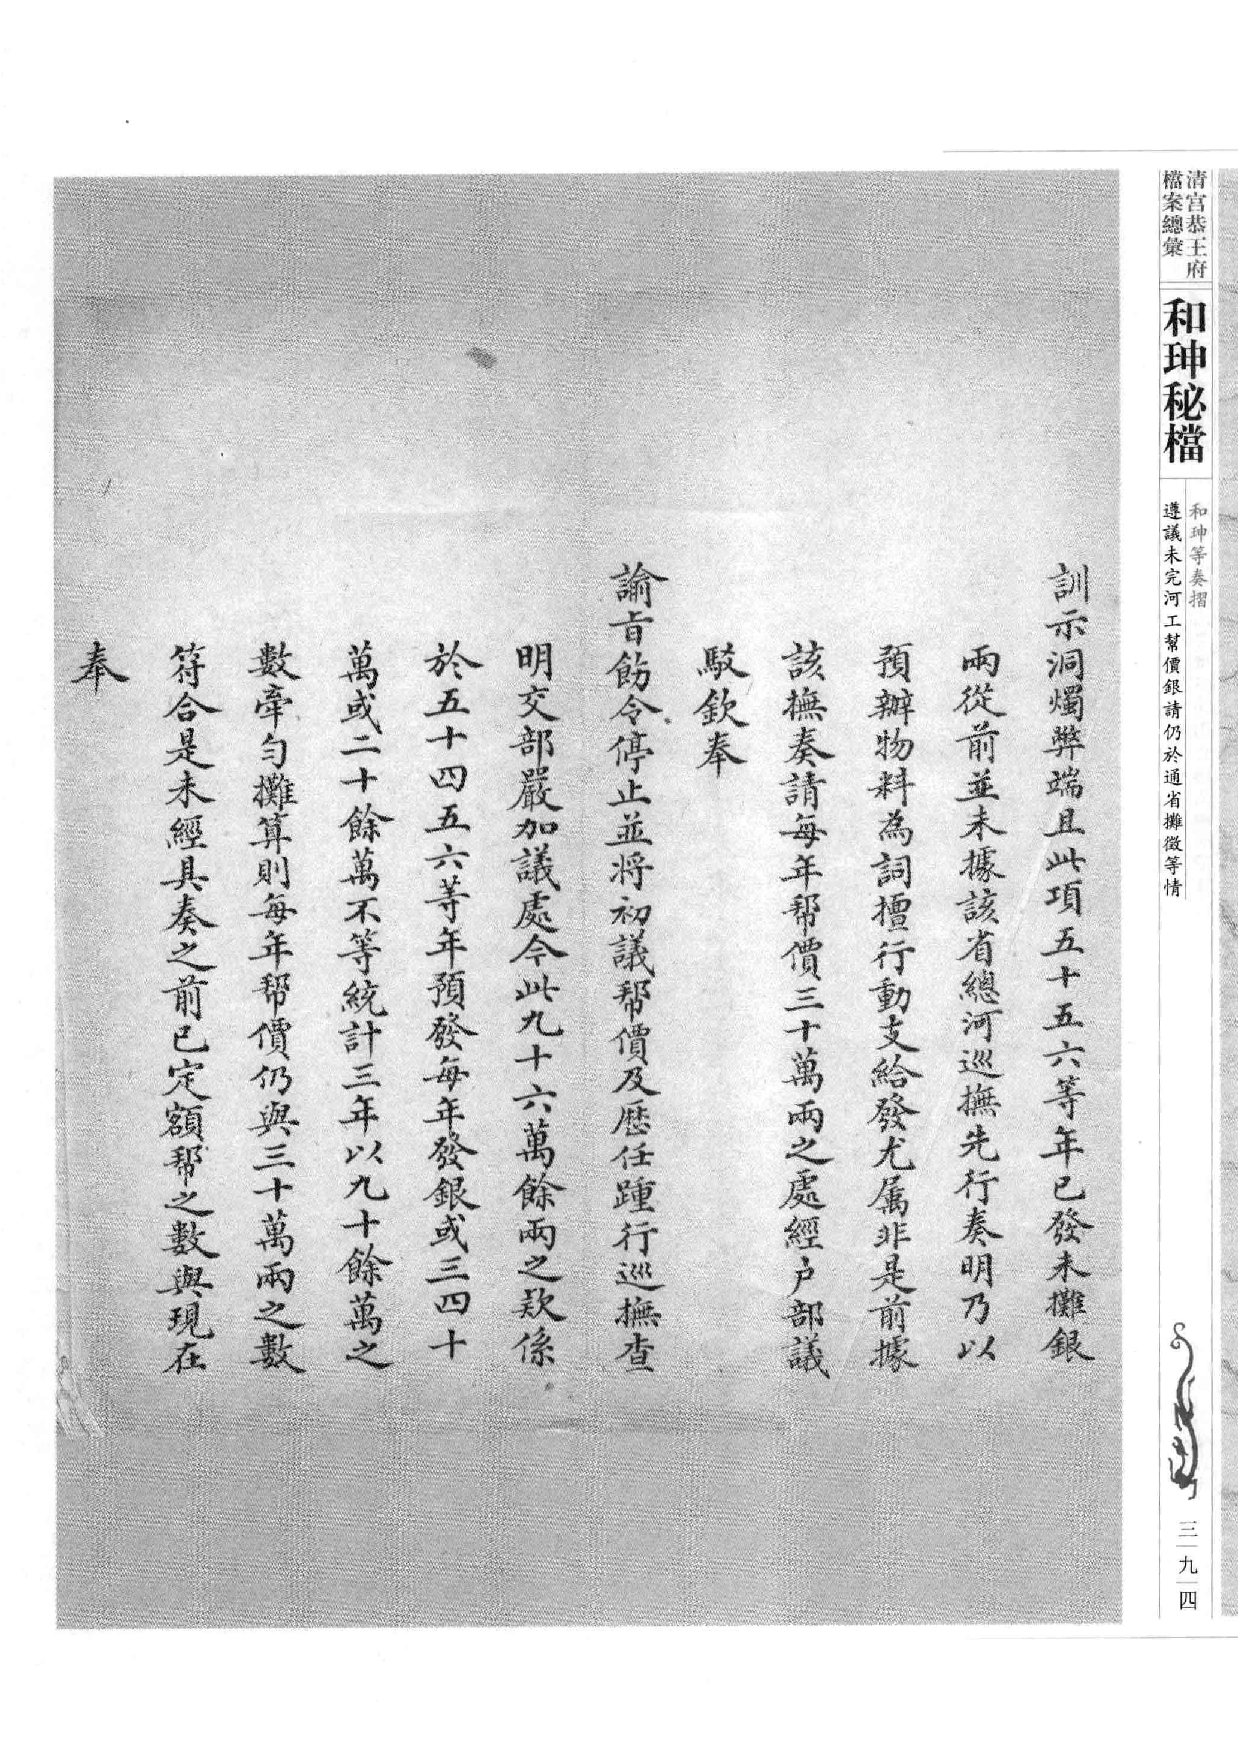 清宮恭王府
檔案總彙
和珅秘檔
和珅等奏摺
遵議未完河工幫價銀請仍於通省攤徵等情
三九四
訓示洞燭弊端且此項五十五六等年已發未攤銀
兩從前並未據該省總河巡撫先行奏明乃以
預辦物料為詞擅行動支給發尤属非是前據
該撫奏請每年帮價三十萬兩之處經户部議
駁欽奉
諭旨飭令停止並將初議帮價及歷任踵行巡撫查
明交部嚴加議處今此九十六萬餘兩之欵係
於五十四五六等年預發每年發銀或三四十
萬或二十餘萬不等統計三年以九十餘萬之
數牽勻攤算則每年帮價仍與三十萬兩之數
符合是未經具奏之前已定額帮之數與現在
奉